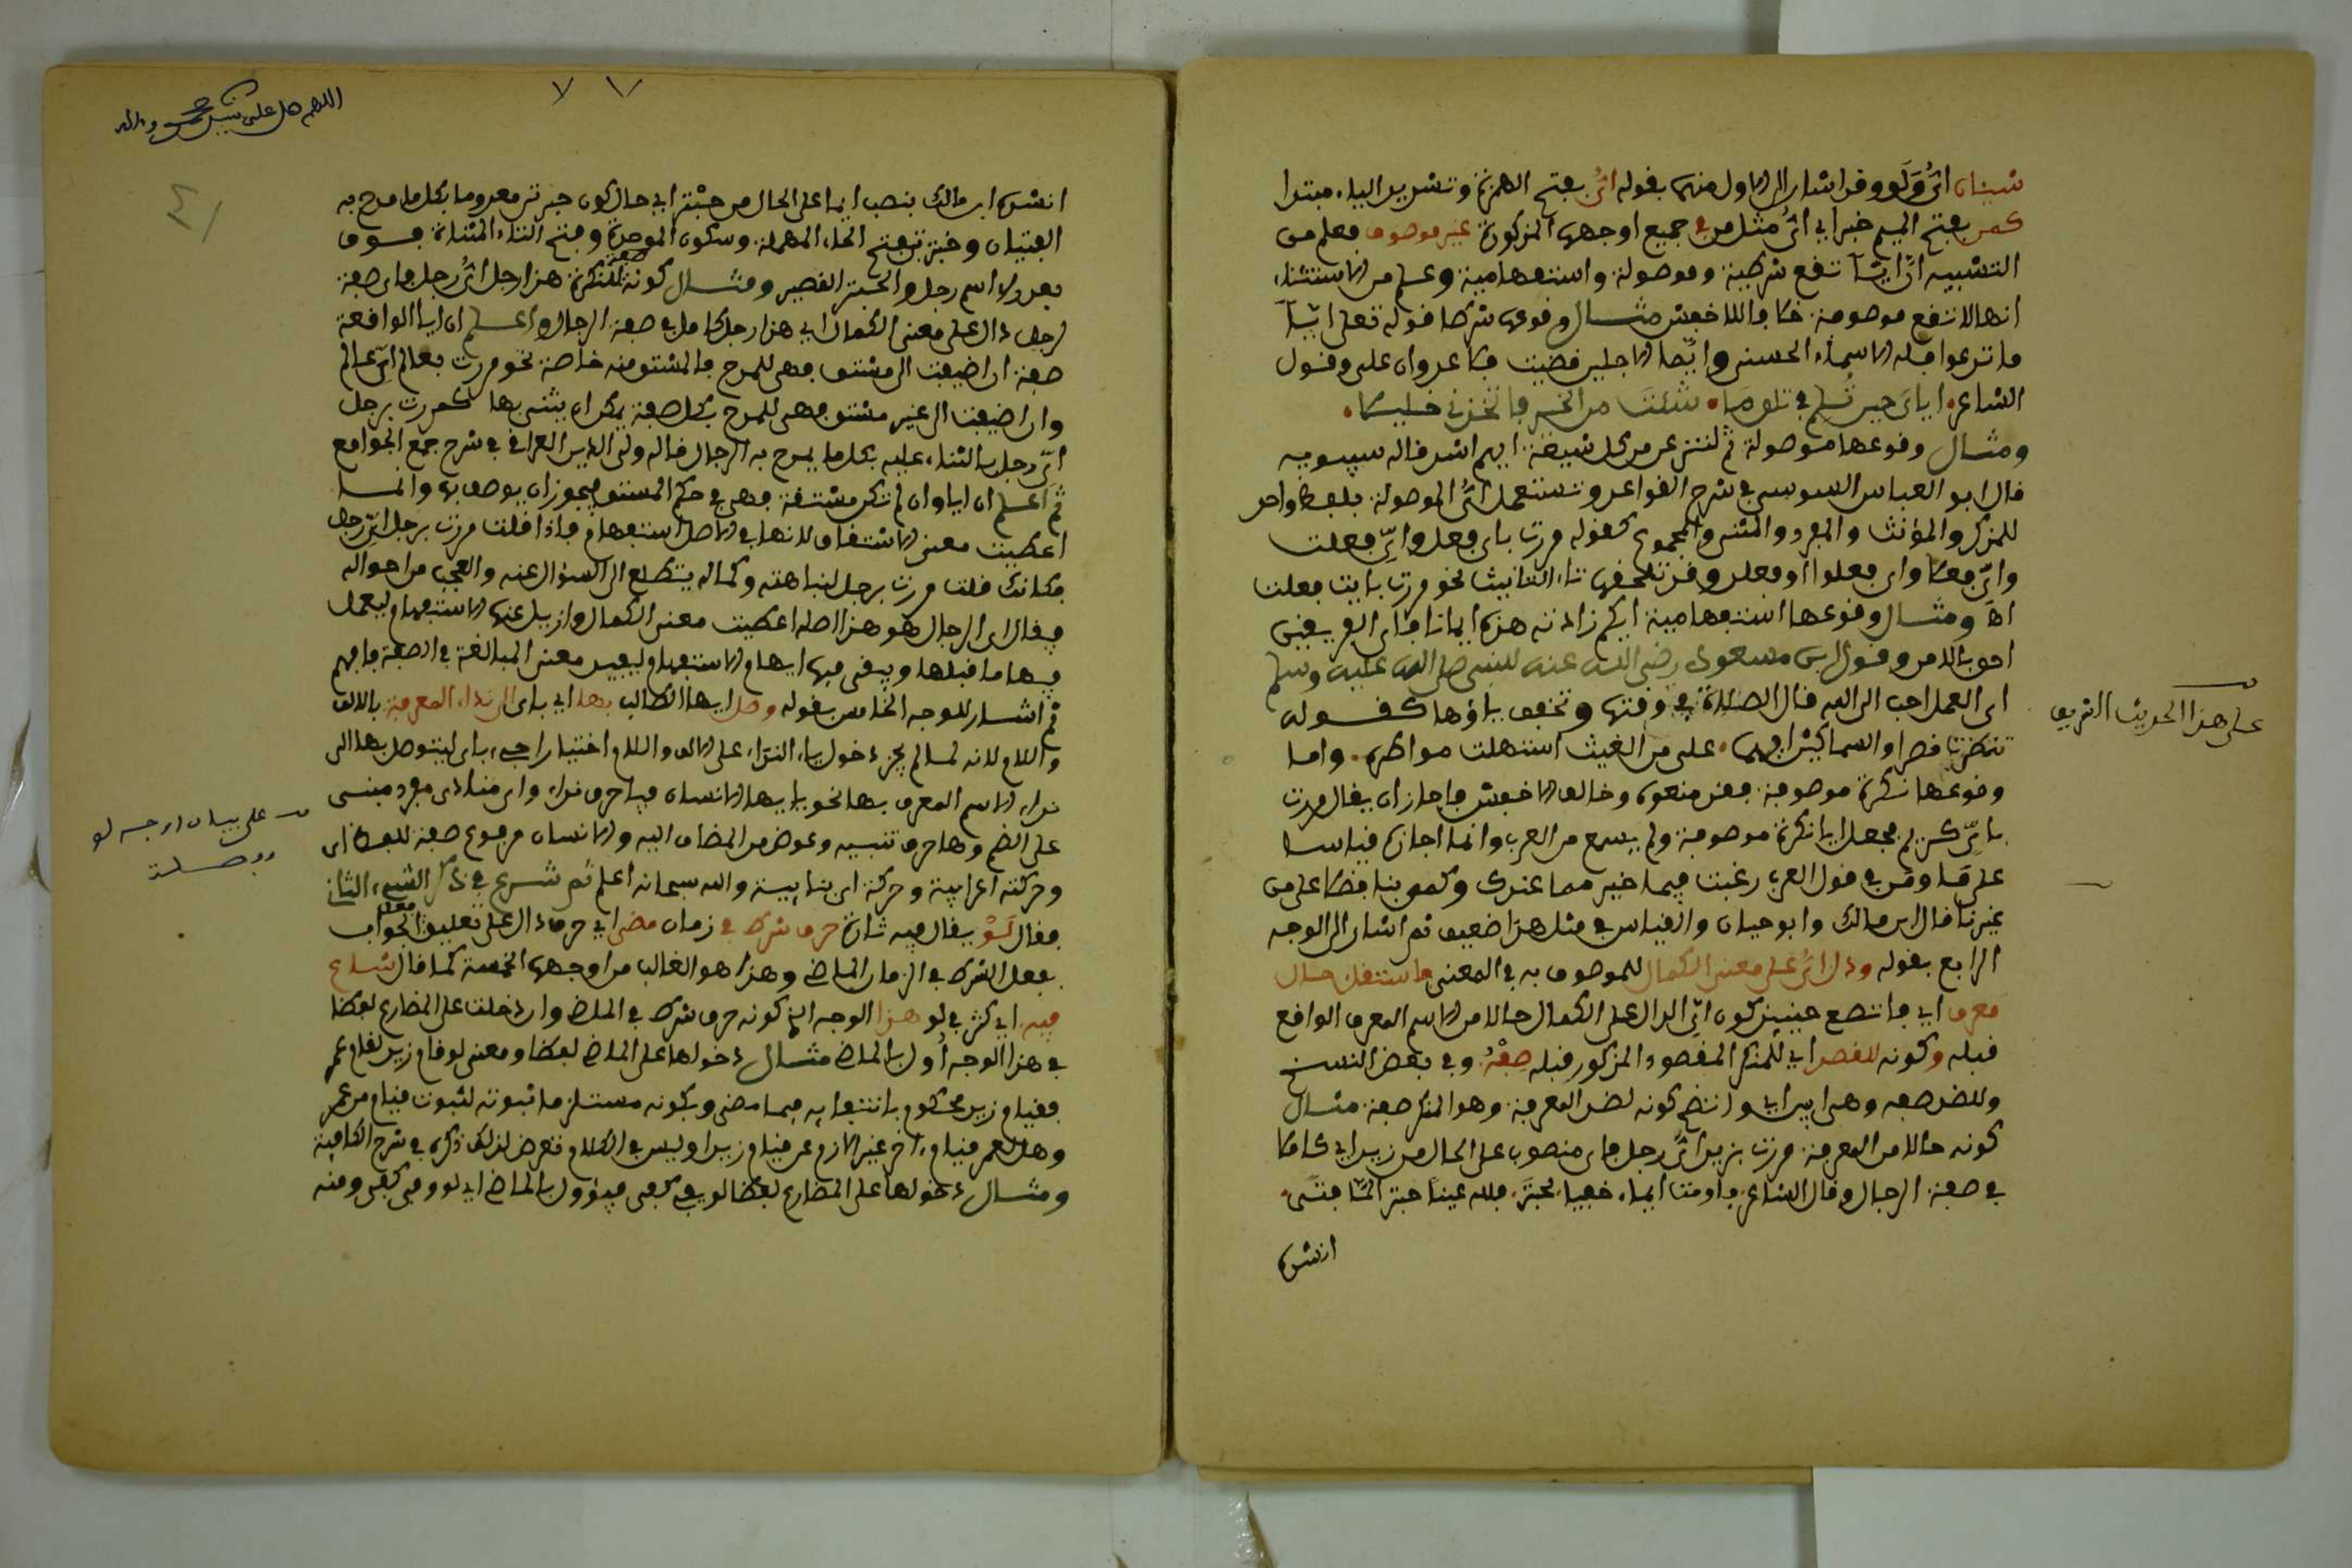 شيئان ايٌّ ولَو وقد اشار الى الاول منهما بقوله ايٌّ بفتح الهمزة وتشديد الياء مبتدا
كمن بفتح الميم خبر اي ايٌّ مثل من في جميع اوجهها المذكورة غير موصوف فعلم من
التشبيه ان ايّاً تقع شرطية وموصولة واستفهامية وعلم من الاستثناء
انها لا تقع موصوفة خلافا للاخفش مثال وقوعها شرطا قوله تعلى ايّاً
ما تدعوا فله الاسماء الحسنى وايّما الاجلين قضيت فلا عدوان علي وقول
الشاعر
ومثال وقوعها موصولة ثم لننزعن من كل شيعة ايهم اشد قاله سيبويه
قال ابو العباس السوسي في شرح القواعد وتستعمل ايُّ الموصولة بلفظ واحد
للمذكر والمؤنث والمفرد والمثنى والمجموع كقوله مررت باي فعل وايِّ فعلت
وايِّ فعلا واي فعلوا او فعلن وقد تلحقها تاء التانيث نحو مررت باية فعلت
اه ومثال وقوعها استفهامية ايكم زادته هذه ايمانا فاي الفريقين
احق بالامن وقول ابن مسعود رضي الله عنه للنبي صلى الله عليه وسلم
اي العمل احب الى الله قال الصلاة في وقتها وتخفف ياؤها كقوله
تنظرت نصرا والسماكين ايهما علي من الغيث استهلت مواطره واما
وقوعها نكرة موصوفة فقد منعوه وخالف الاخفش فاجاز ان يقال مررت
بايٍّ كريم فجعل ايا نكرة موصوفة ولم يسمع من العرب وانما اجازه قياسا
على ما ومن في قول العرب رغبت فيما خير مما عندك وكفى بنا فضلا على من
غيرنا قال ابن مالك وابو حيان والقياس في مثل هذا ضعيف ثم اشار الى الوجه
الرابع بقوله ودل ايٌّ على معنى الكمال للموصوف به في المعنى فاستقل حال
معرف اي فاتضح حينئذ كون ايِّ الدال على الكمال حالا من الاسم المعرف الواقع
قبله وكونه للقصر اي للمنكر المقصود المذكور قبله صفةً وفي بعض النسخ
وللضد صفه وهي ابين اي واتضح كونه لضد المعرفة وهو المنكر صفة مثال
كونه حالا من المعرفة مررت بزيد ايَّ رجل فاي منصوب على الحال من زيد اي كاملا
في صفة الرجال وقال الشاعر فاومئت ايماء خفيا لحبتر فلله عينا حبتر ايّما فتى
انشده
على هذا الحديث الشريف
اللهم صل على نبيك محمد وءاله
انشده ابن مالك بنصب ايما على الحال من حبتر اي حال كون حبتر معروفا بكل ما مدح به
الفتيان وحبتر بفتح الحاء المهملة وسكون الموحدة وفتح التاء المثناة فوق
بعدها اسم رجل والحبتر القصير ومثال كونه صفة للنكرة هذا رجل ايُّ رجل فاي صفة
لرجل دال على معنى الكمال اي هذا رجل كامل في صفة الرجال واعلم ان ايا الواقعة
صفة ان اضيفت الى مشتق فهي للمدح بالمشتق منه خاصة نحو مررت بعالم ايِّ عالم
وان اضيفت الى غير مشتق فهي للمدح بكل صفة يمكن ان يثنى بها كمررت برجل
ايِّ رجل بالثناء عليه بكل ما يمدح به الرجال قاله ولي الدين العراقي في شرح جمع الجوامع
ثم اعلم ان ايا وان لم تكن مشتقة فهي في حكم المشتق فيجوز ان يوصف بها وانما
اعطيت معنى الاشتقاق لانها في الاصل استفهام فاذا قلت مررت برجل ايِّ رجل
فكانك قلت مررت برجل لنباهته وكماله يتطلع الى السؤال عنه والتعجب من احواله
فيقال اي الرجال هو هذا اصله اعطيت معنى الكمال وازيل عنها الاستفهام ليعمل
فيها ما قبلها وبقي فيها ابهام الاستفهام ليفيد معنى المبالغة في الصفة فافهم
ثم اشار للوجه الخامس بقوله وصل ايها الطالب بها اي باي الى نداء المعرفة بالالف
واللام لانه لما لم يجز دخول ياء النداء على الالف واللام اختيارا جيء باي ليتوصل بها الى
نداء الاسم المعرف بها نحو يا ايها الانسان فيا حرف نداء واي منادى مفرد مبني
على الضم وها حرف تنبيه وعوض من المضاف اليه والانسان مرفوع صفة للفظ اي
وحركته اعرابية وحركة اي بنايية والله سبحانه اعلم ثم شرع في ذكر الشيء الثاني
فقال لَوْ يقال فيه تارة حرف شرط في زمان مضى اي حرف دال على تعليق فعل الجواب
بفعل الشرط في الزمان الماضي وهذا هو الغالب من اوجهها الخمسة كما قال شاع
فيه اي كثر في لو هذا الوجه الذي كونه حرف شرط في الماضي وان دخلت على المضارع لفظا
في هذا الوجه اُول بالماضي مثال دخولها على الماضي لفظا ومعنى لو قام زيد لقام عمر
فقيام زيد محكوم بانتفايه فيما مضى وبكونه مستلزما ثبوته لثبوت قيام من عمر
وهل لعمر قيام ءاخر غير الازم عن قيام زيد او ليس في الكلام تعرض لذلك ذكره في شرح الكافية
ومثال دخولها على المضارع لفظا لو يفي كفى فيؤول بالماضي اي لو وفى كفى ومنه
على بيان اوجه لو